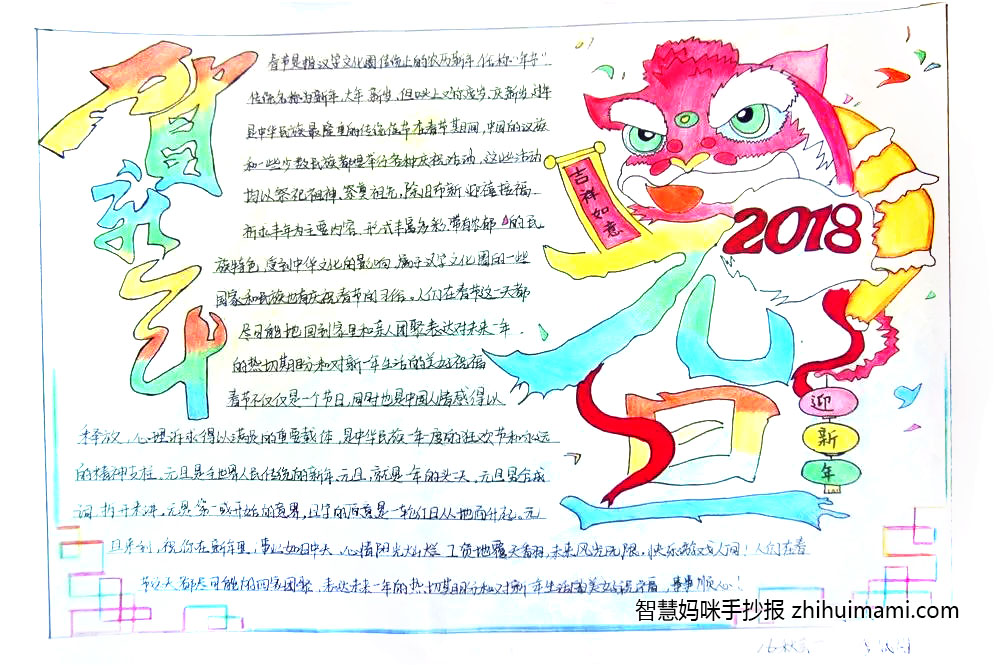 贺新年
春节是指汉字文化圈传统上的农历新年,俗称“年节”
传统名称为新年、大年、新岁,但口头上又称度岁、庆新岁、过年
是中华民族最隆重的传统佳节。在春节期间,中国的汉族
和一些少数民族都要举行各种庆祝活动,这些活动
均以祭祀祖神、祭奠祖先、除旧布新、迎禧接福、
祈求丰年为主要内容,形式丰富多彩,带有浓郁的民
族特色。受到中华文化的影响,属于汉字文化圈的一些
国家和民族也有庆祝春节的习俗。人们在春节这一天都
尽可能地回到家里和亲人团聚,表达对未来一年
的热切期盼和对新一年生活的美好祝福
春节不仅仅是一个节日,同时也是中国人情感得以
释放、心理诉求得以满足的重要载体,是中华民族一年一度的狂欢节和永远
的精神支柱。元旦是全世界人民传统的新年,元旦,就是一年的头一天。元旦是合成
词,拆开来讲,元是第一或开始的意思,旦字的原意是一轮红日从地面升起。元
旦来到,祝你在新年里,事业如日中天,心情阳光灿烂,工资地覆天翻,未来风光无限,快乐游戏人间!人们在春
节这天都尽可能的回家团聚,表达未来一年的热切期盼和对新一年生活的美好祝福,事事顺心!
吉祥如意
2018
元旦
迎
新
年
智慧妈咪手抄报 zhihuimami.com